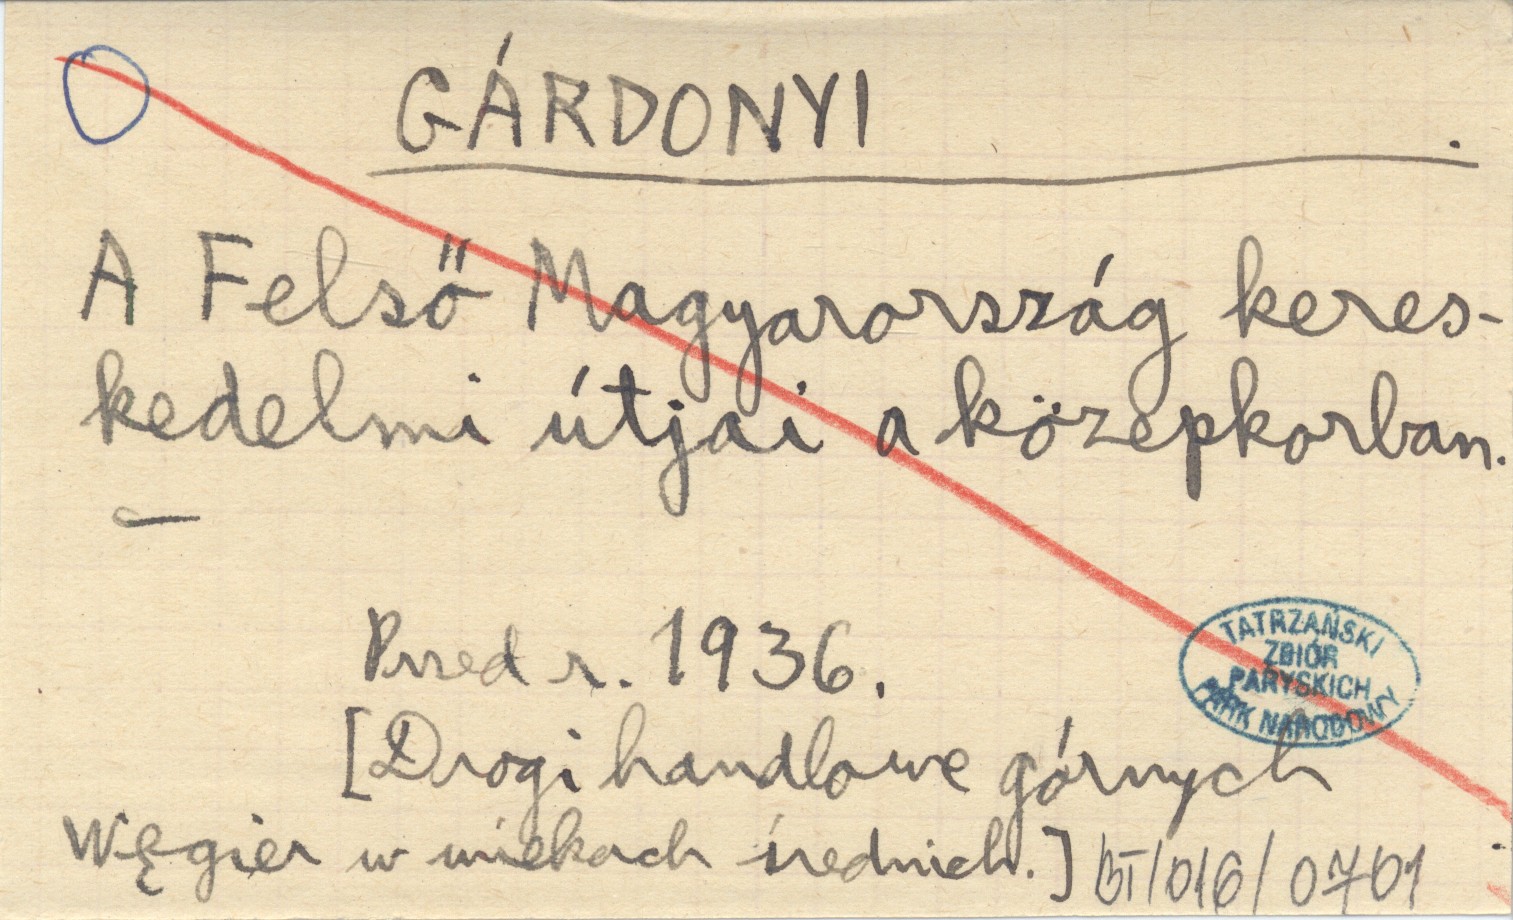 GÁRDONYI .
A Felső Magyarország keres-
kedelmi útjai a középkorban.
—
Przed r. 1936.
TATRZAŃSKI
ZBIÓR
PARYSKICH
PARK NARODOWY
[Drogi handlowe górnych
Węgier w wiekach średnich.] BT/016/0701